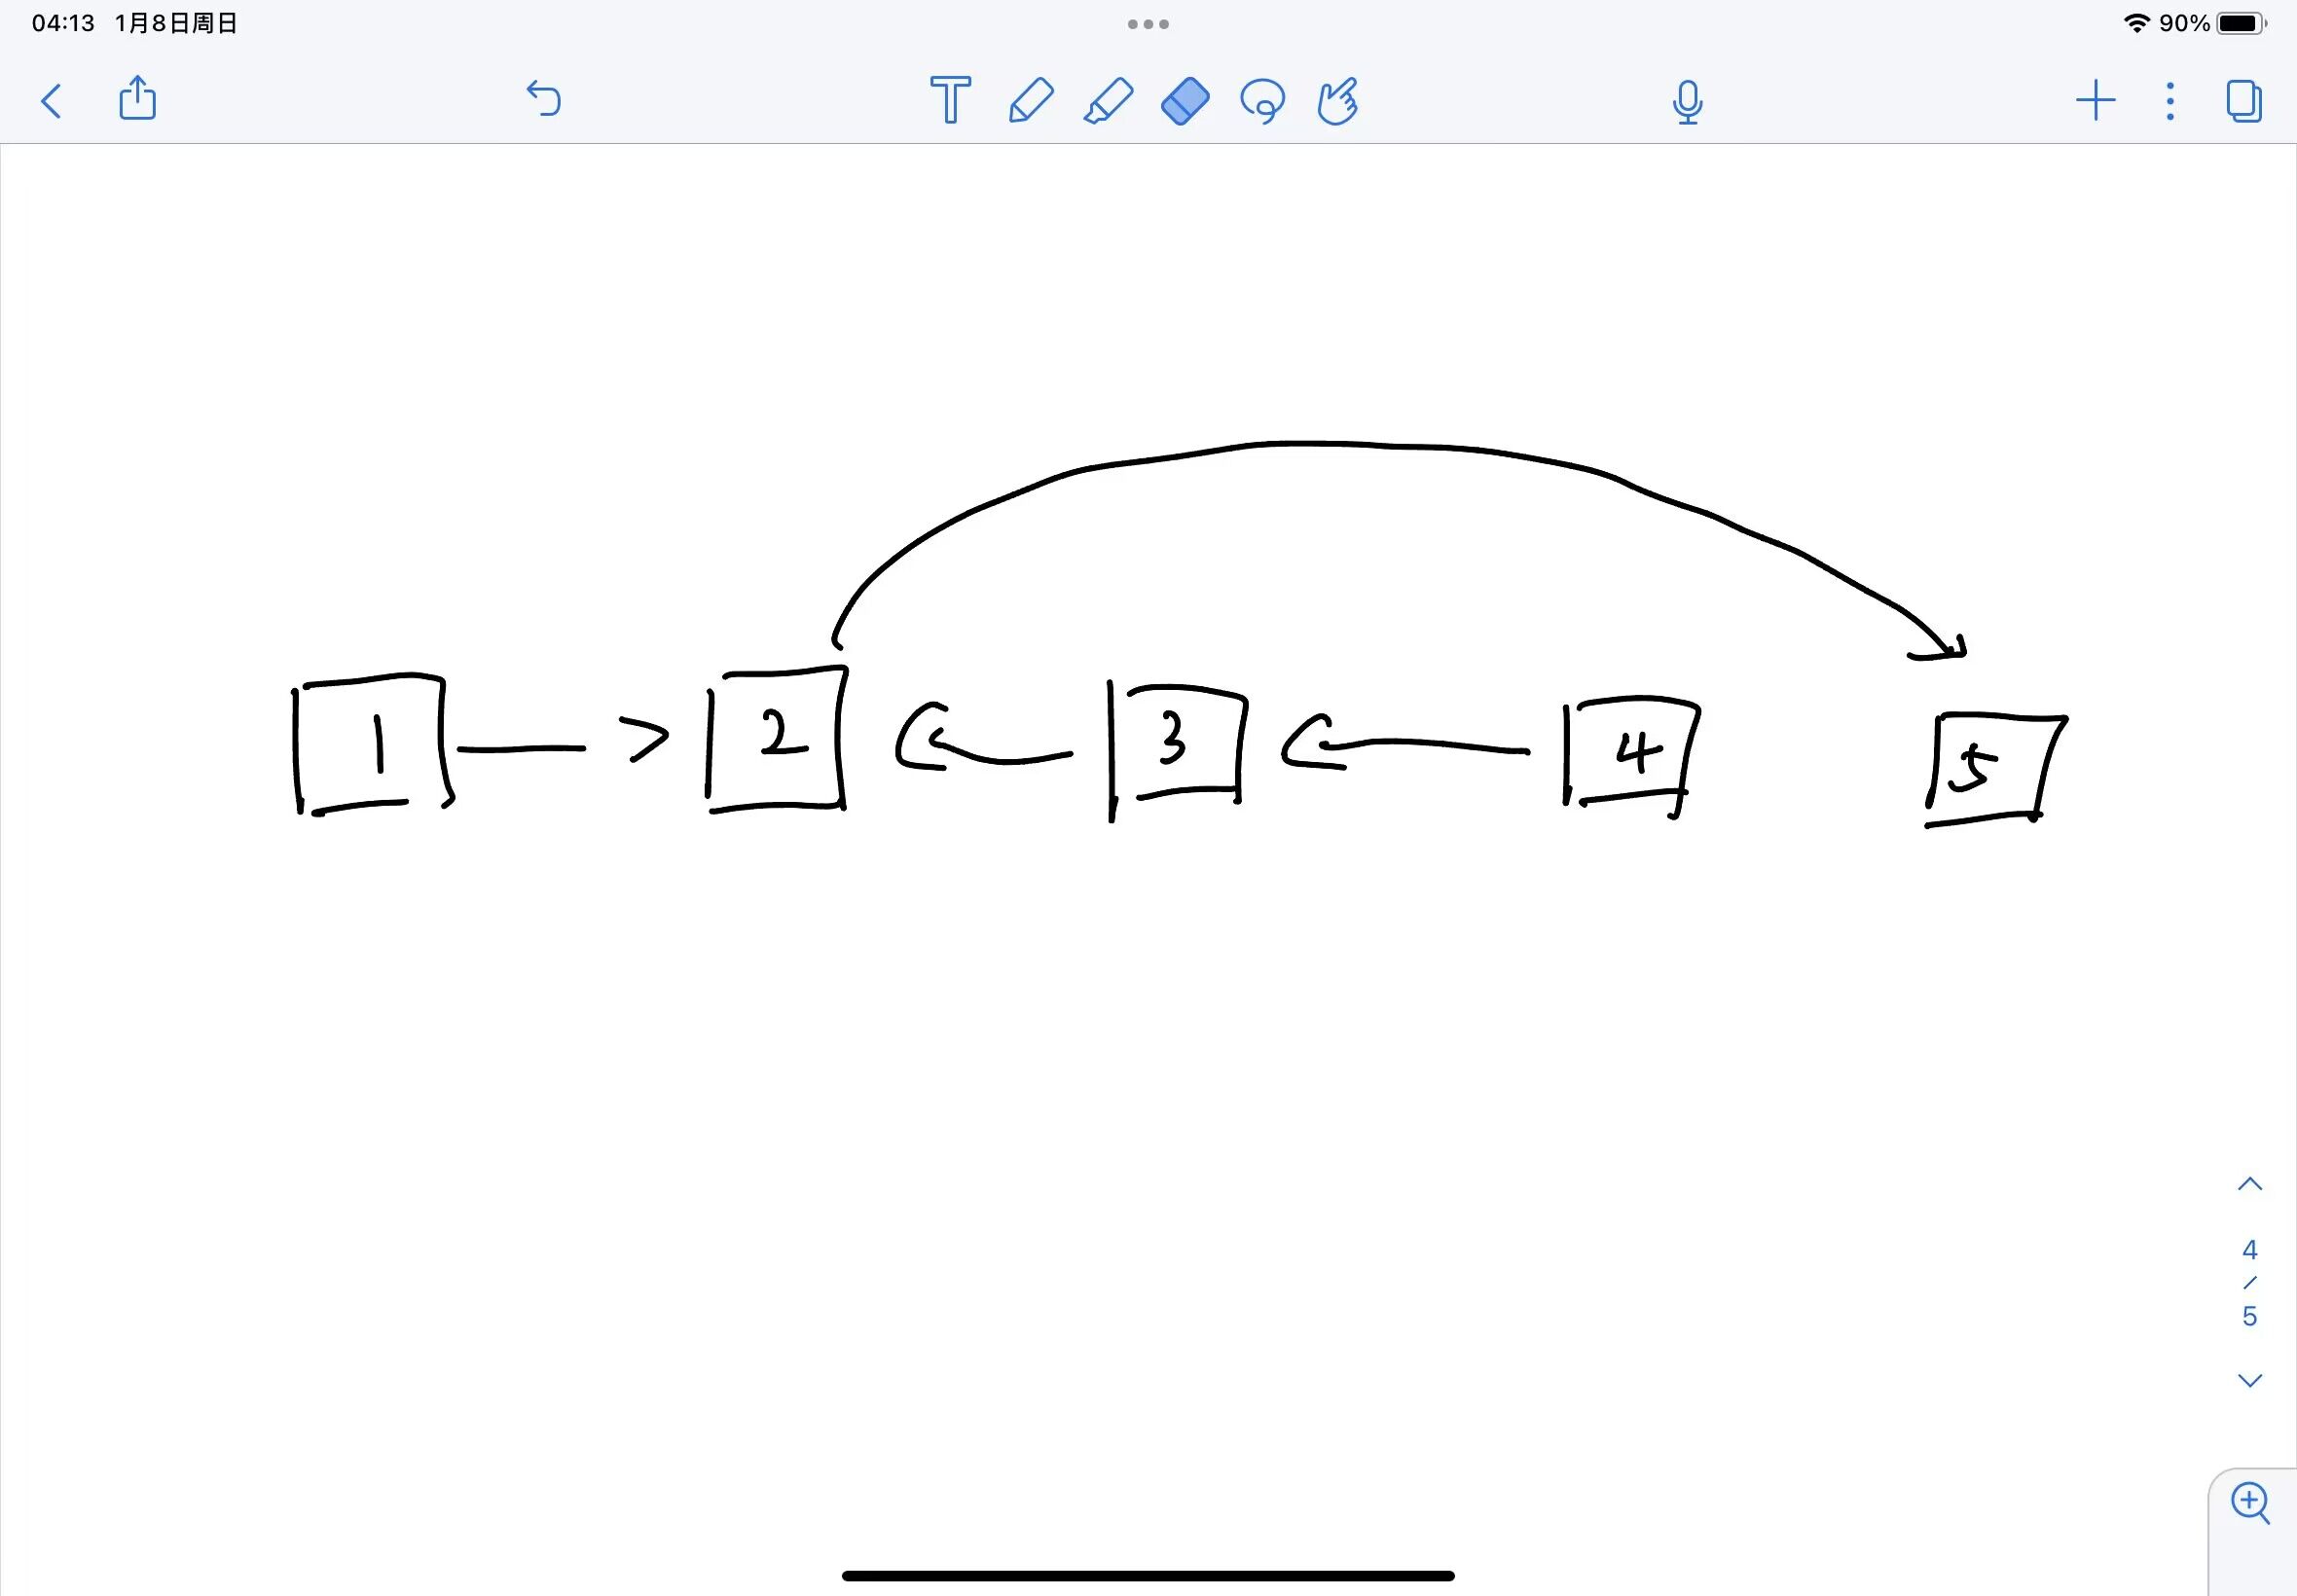 04:13 1月8日周日
90%
T
1 2 3 4 5
4
/
5